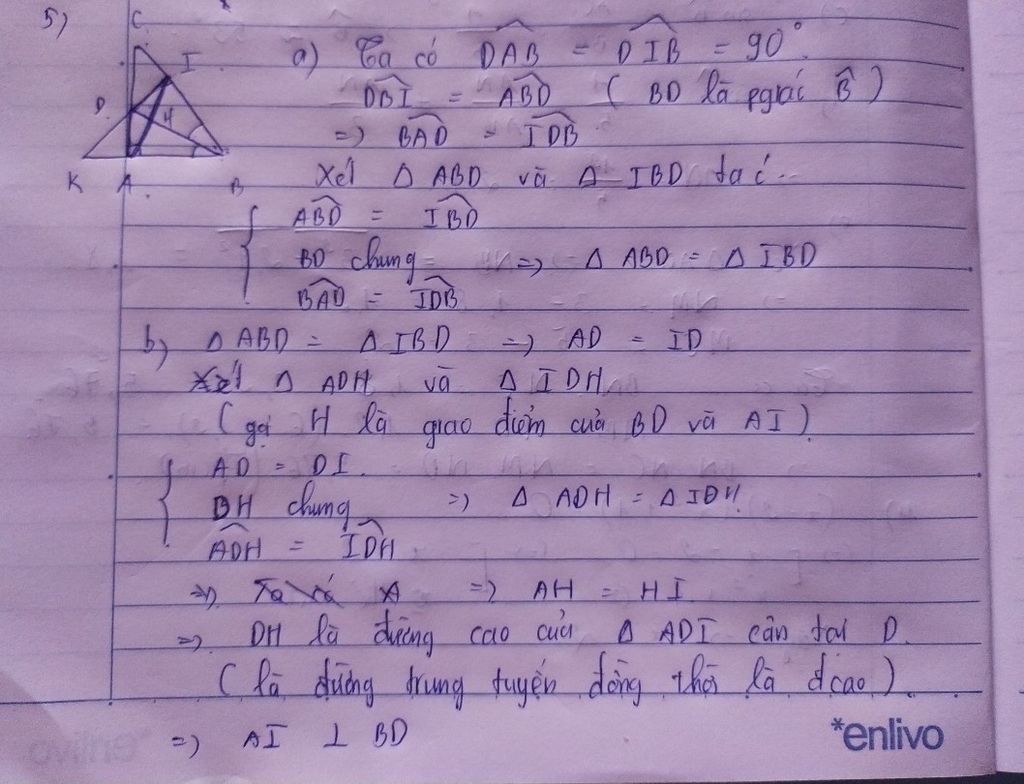 5)
C
I
D
H
K A B
a) Ta có DAB = DIB = 90°
DBI = ABD (BD là pgiác B)
=> BAD = IDB
Xét Δ ABD và Δ IBD ta c
ABD = IBD
BD chung => Δ ABD = Δ IBD
BAD = IDB
b) Δ ABD = Δ IBD => AD = ID
Xét Δ ADH và Δ IDH
(gọi H là giao điểm của BD và AI)
AD = DI.
DH chung => Δ ADH = Δ IDH
ADH = IDH
=> AH = HI
=> DH là đường cao của Δ ADI cân tại D.
(là đường trung tuyến đồng thời là đcao)
=> AI ⊥ BD
*enlivo